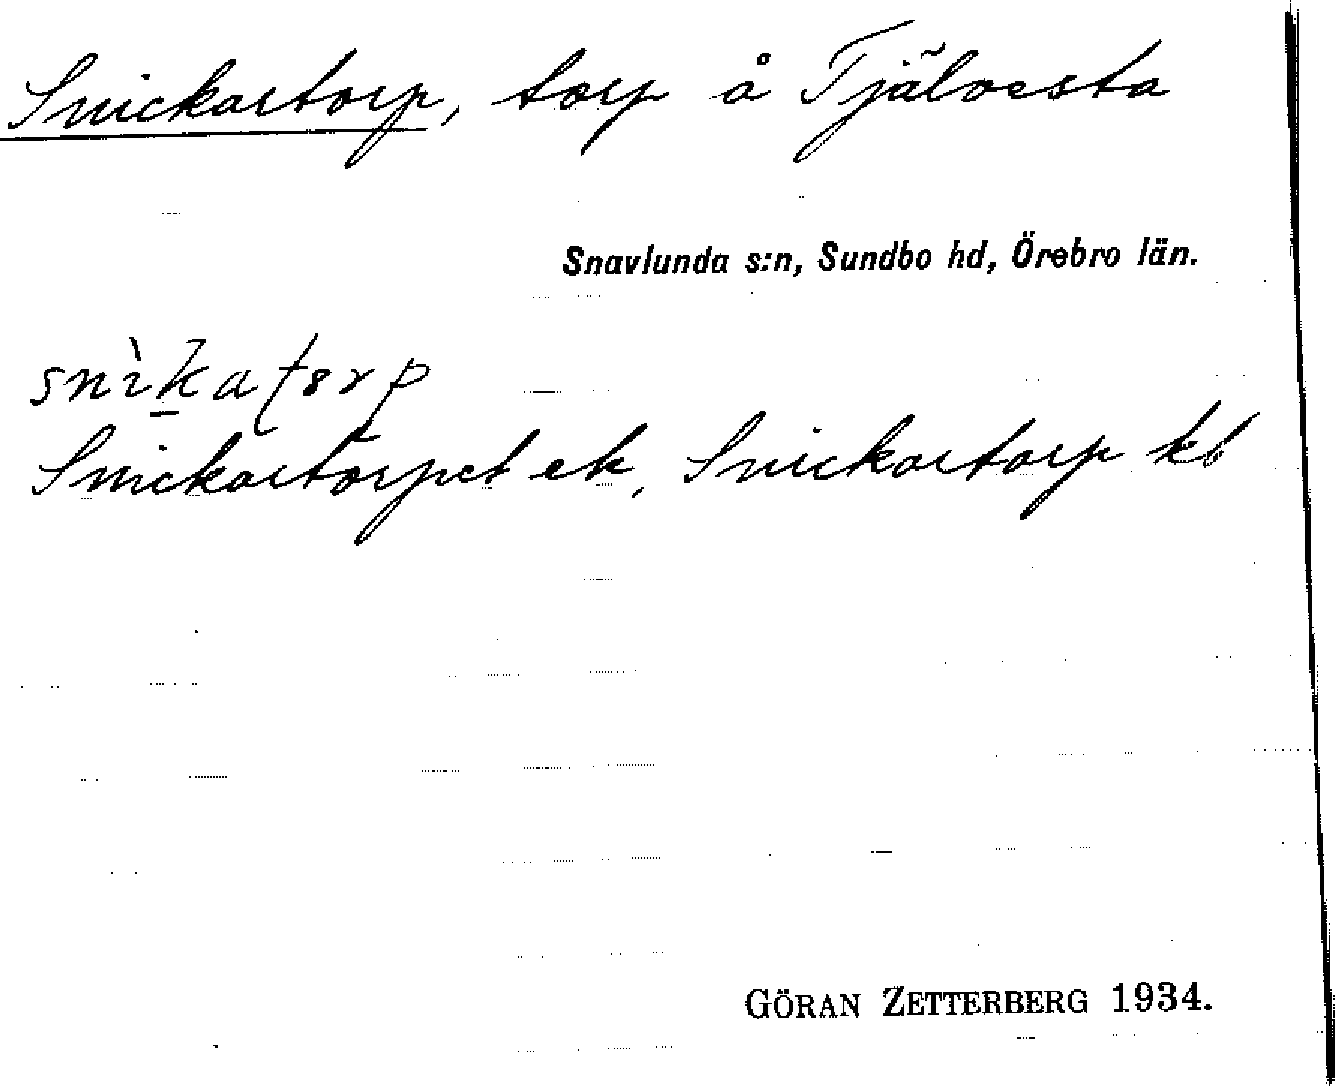 Snickartorp, torp å Tjälvesta
Snavlunda s:n, Sundbo hd, Örebro län.
snìkatorp
Snickartorpet ek, Snickartorp kb
GÖRAN ZETTERBERG 1934.